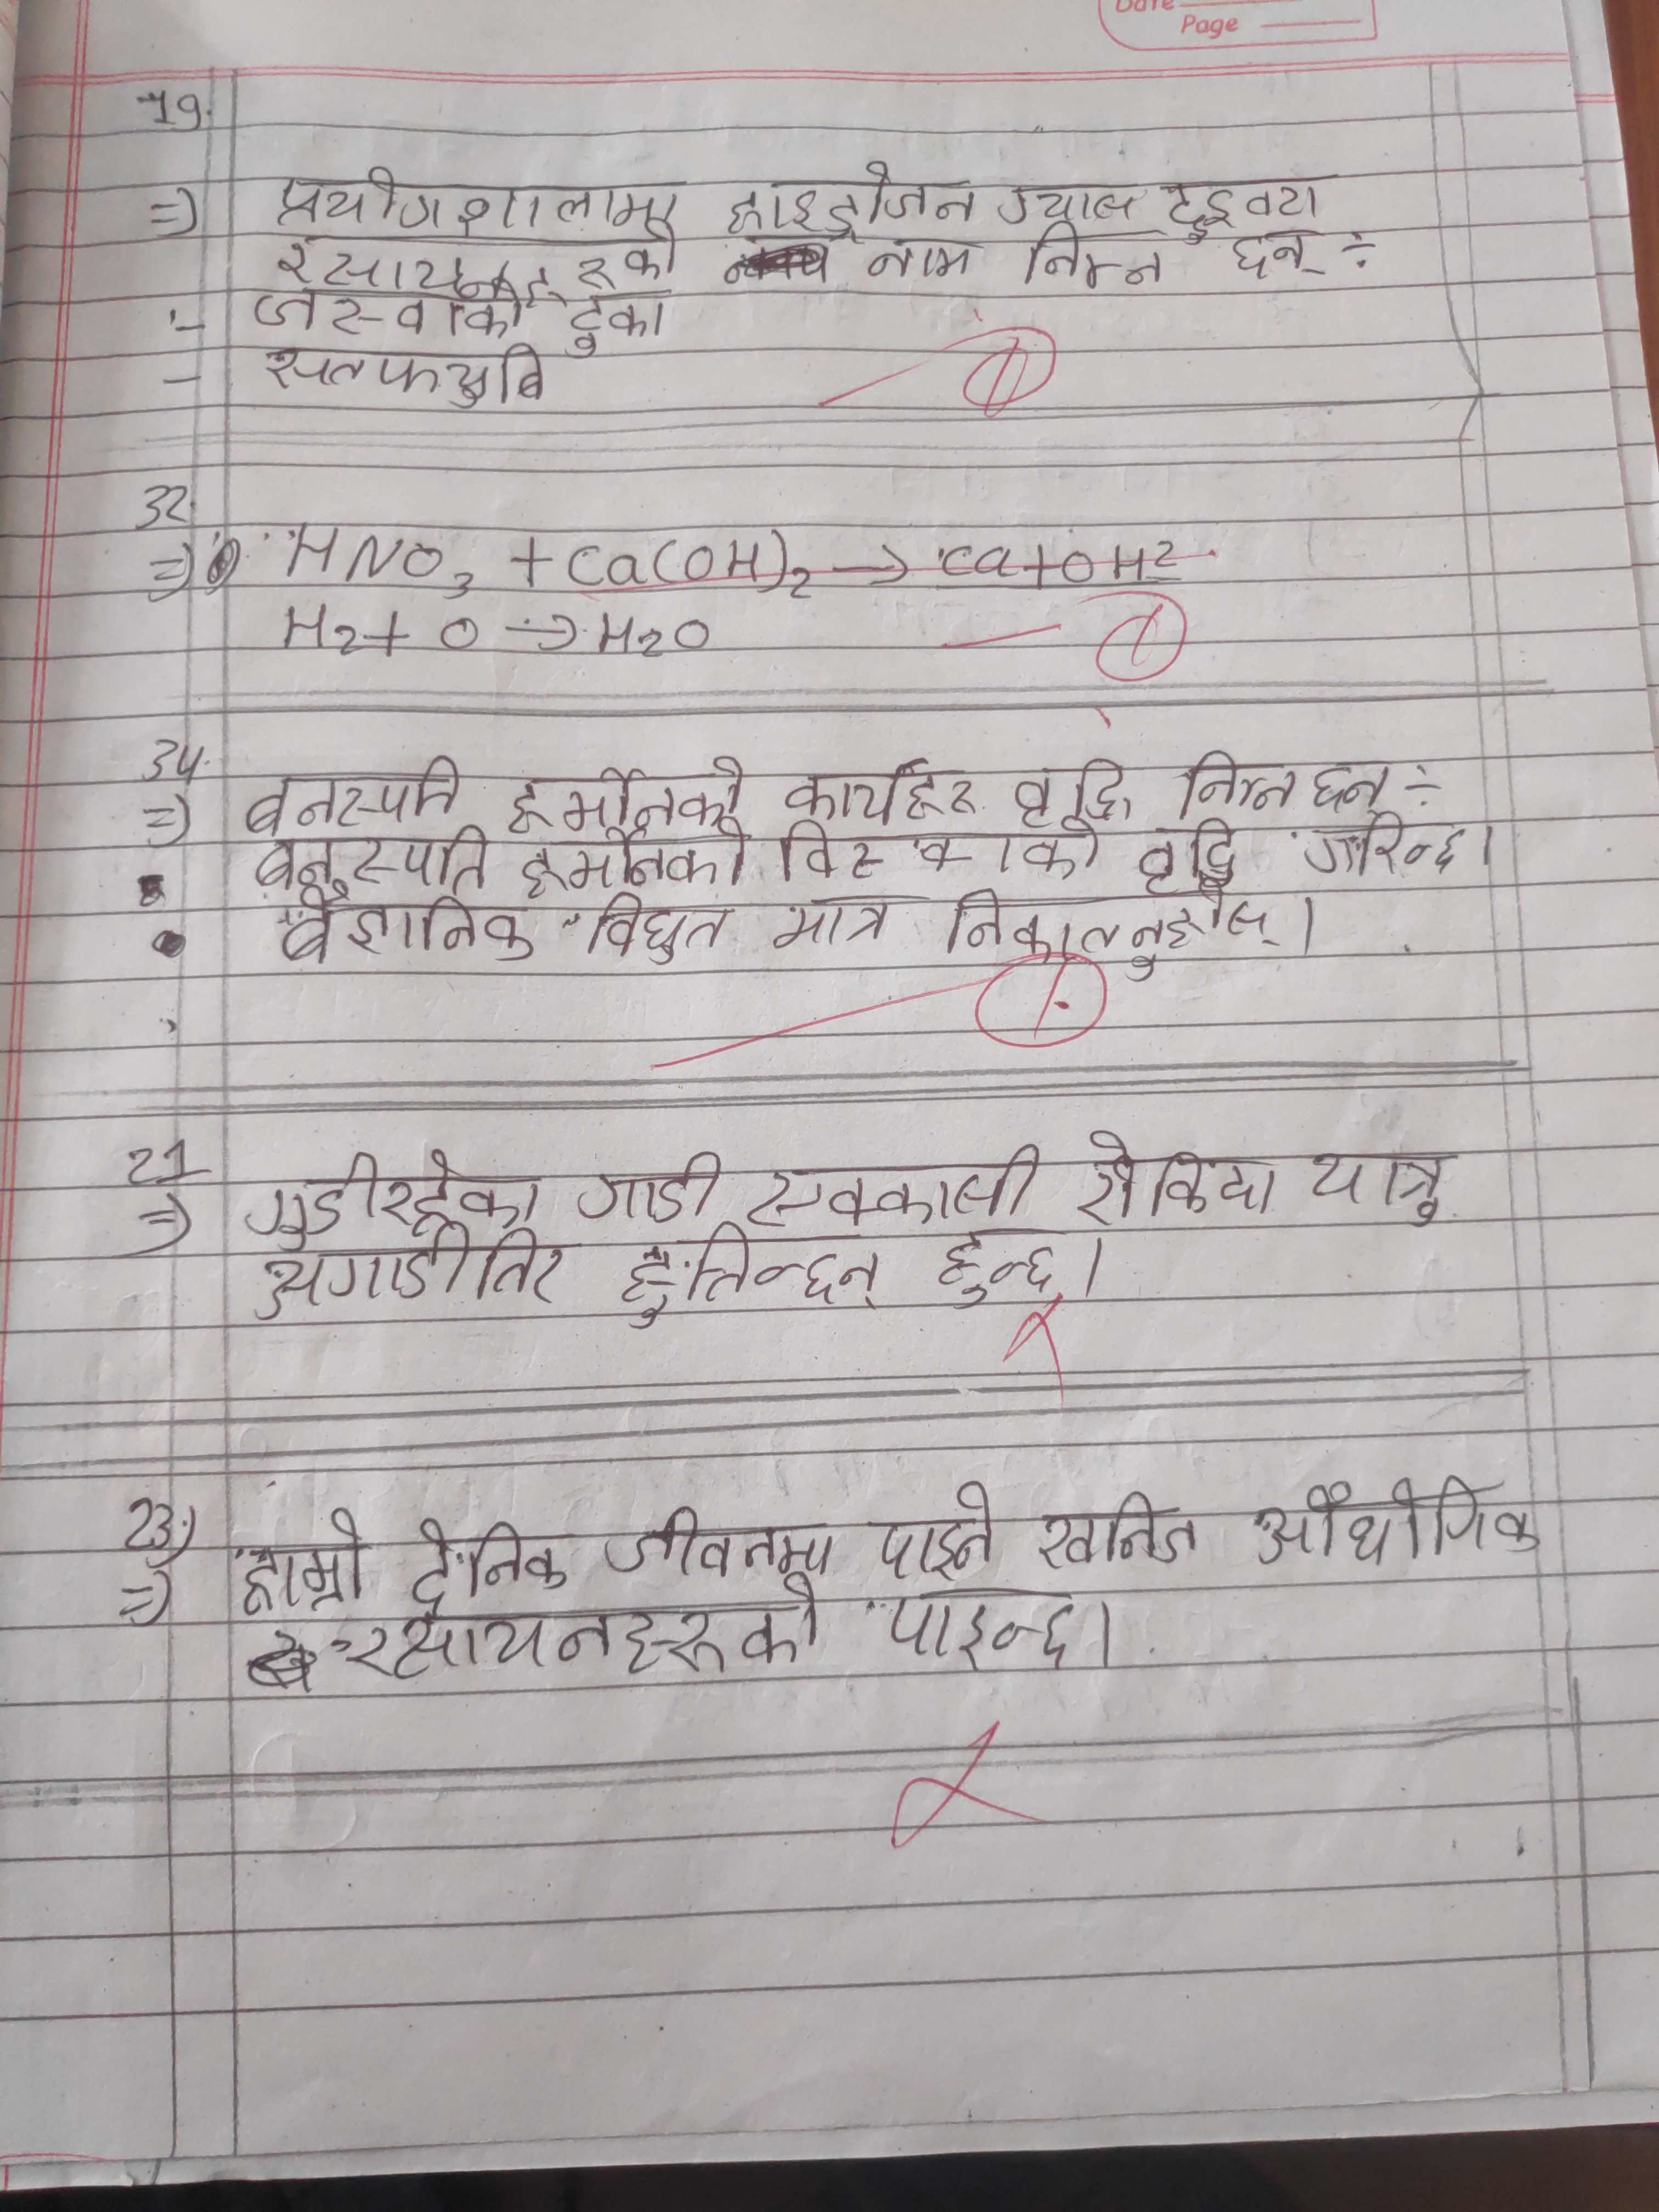 Date
Page
19.
=) प्रयोगशालामा हाइड्रोजन ग्यास दुइवटा
रसायनहरुको नाम निम्न छन् ÷
:- जस्ताको टुक्रा
-
32.
=) HNO3 + Ca(OH)2 → Ca+OH2
H2 + O → H2O
34.
=) बनस्पति हर्मोनको कार्यहरु वृद्धि निम्न छन् ÷
बनस्पति हर्मोनको वृद्धि गरिन्छ।
बैज्ञानिक विघुत मात्र निकाल्नुहोस्।
21
=) गुडीरहेका गाडी एक्कासी रोकिदा यात्रु
अगाडीतिर हुत्तिन्छन् हुन्छ।
23.)
=) हाम्रो दैनिक जीवनमा पाइने खनिज औधोगिक
रसायनहरुको पाइन्छ।